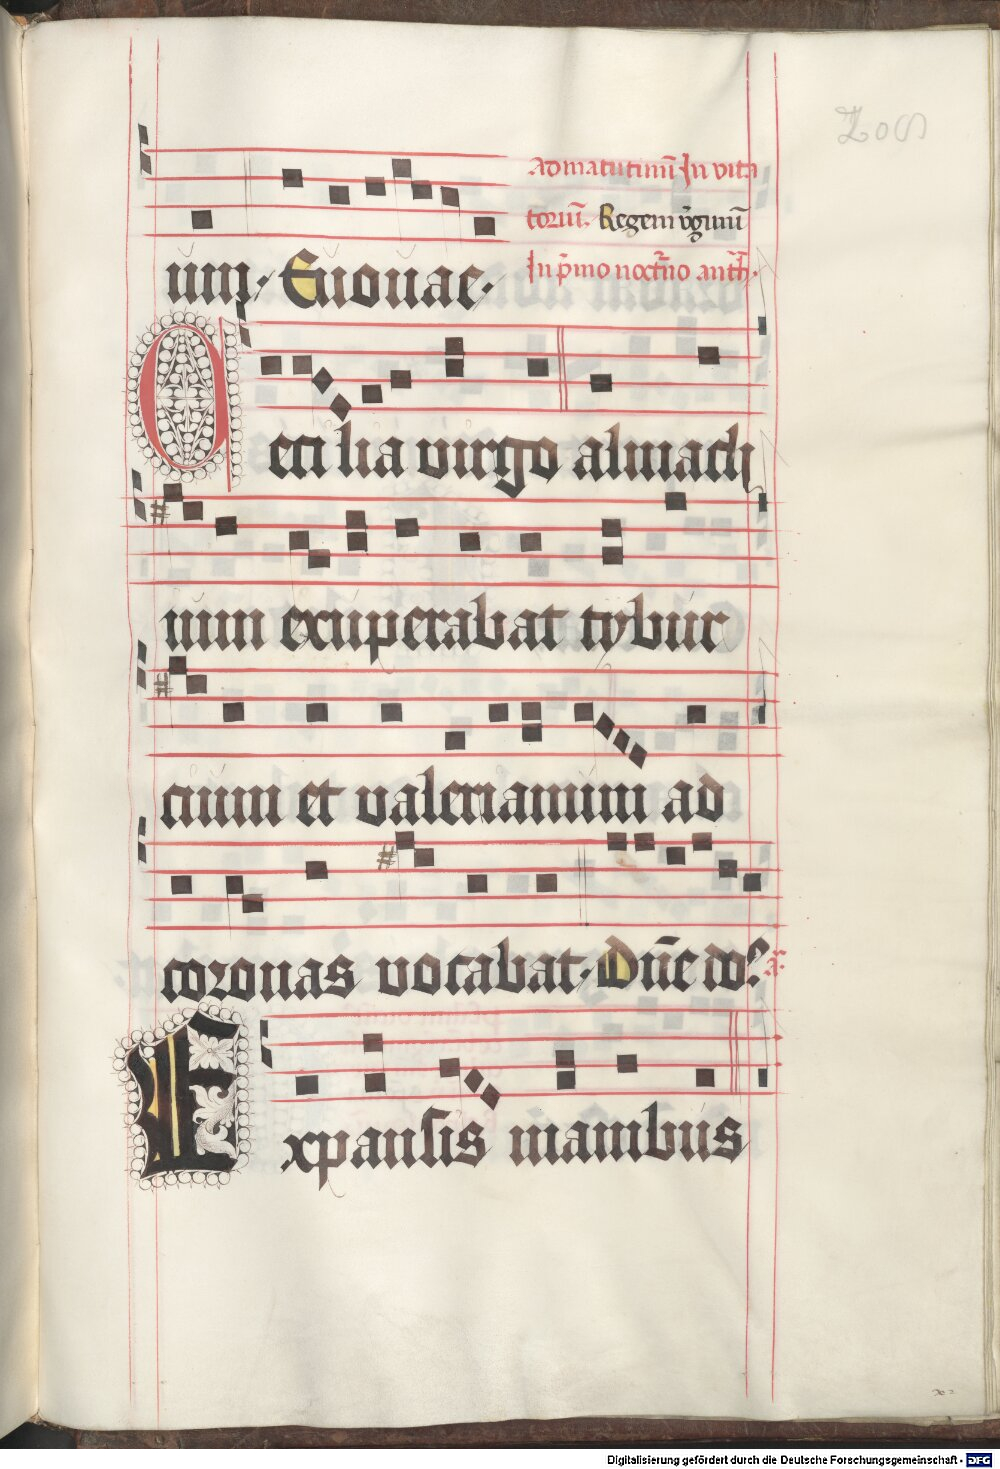 Ad matutinū Jn vita
toriū. Regem v̄ginū
um. Euouae.
Jn p̄mo noct̄no anth̄.
Cecilia virgo almach
num exuperabat tybur
cium et valerianum ad
coronas vocabat. Dn̄e do⁹ a
Expansis manibus
Digitalisierung gefördert durch die Deutsche Forschungsgemeinschaft - DFG